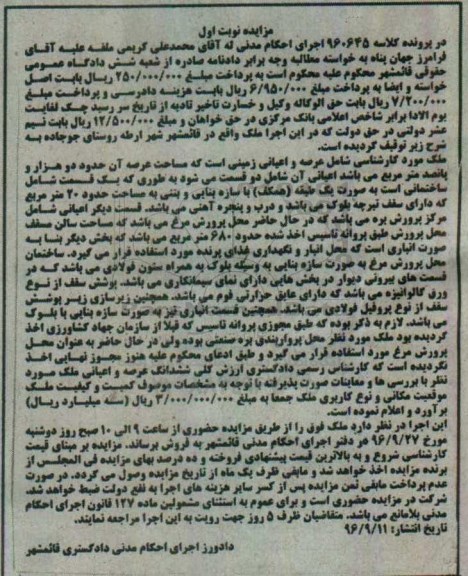 مزایده نوبت اول
در پرونده کلاسه ۹۶۰۶۴۵ اجرای احکام مدنی له آقای محمدعلی کریمی ملفه علیه آقای
فرامرز جهان پناه به خواسته مطالبه وجه برابر دادنامه صادره از شعبه شش دادگاه عمومی
حقوقی قائمشهر محکوم علیه محکوم است به پرداخت مبلغ ۲۵۰/۰۰۰/۰۰۰ ریال بابت اصل
خواسته و ایضا به پرداخت مبلغ ۶/۹۵۰/۰۰۰ ریال بابت هزینه دادرسی و پرداخت مبلغ
۷/۲۰۰/۰۰۰ ریال بابت حق الوکاله وکیل و خسارت تاخیر تادیه از تاریخ سر رسید چک لغایت
یوم الادا برابر شاخص اعلامی بانک مرکزی در حق خواهان و مبلغ ۱۲/۵۰۰/۰۰۰ ریال بابت نیم
عشر دولتی در حق دولت که در این اجرا ملک واقع در قائمشهر شهر ارطه روستای جوجاده به
شرح زیر توقیف گردیده است.
ملک مورد کارشناسی شامل عرصه و اعیانی زمینی است که مساحت عرصه آن حدود دو هزار و
پانصد متر مربع می باشد اعیانی آن شامل دو قسمت می شود به طوری که یک قسمت شامل
ساختمانی است به صورت یک طبقه (همکف) با سازه بنایی و بتنی به مساحت حدود ۲۰ متر مربع
که دارای سقف تیرچه بلوک می باشد و درب و پنجره آهنی می باشد. قسمت دیگر اعیانی شامل
مرکز پرورش بره می باشد که در حال حاضر محل پرورش مرغ می باشد که مساحت سالن مسقف
محل پرورش طبق پروانه تاسیس اخذ شده حدود ۶۸۰ متر مربع می باشد که بخش دیگر بنا به
صورت انباری است که محل انبار و نگهداری غذای پرنده مورد استفاده قرار می گیرد. ساختمان
محل پرورش مرغ به صورت سازه بنایی به وسیله بلوک به همراه ستون فولادی می باشد که در
قسمت های بیرونی دیوار در بخش هایی دارای نمای سیمانکاری می باشد. پوشش سقف از نوع
ورق گالوانیزه می باشد که دارای عایق حرارتی فوم می باشد. همچنین زیرسازی زیر پوشش
سقف از نوع پروفیل فولادی می باشد. همچنین قسمت انباری نیز به صورت سازه بنایی با بلوک
می باشد. لازم به ذکر بوده که طبق مجوزی پروانه تاسیس که قبلا از سازمان جهاد کشاورزی اخذ
گردیده بود ملک مورد نظر محل پرواربندی بره صنعتی بوده ولی در حال حاضر به عنوان محل
پرورش مرغ مورد استفاده قرار می گیرد و طبق ادعای محکوم علیه هنوز مجوز نهایی اخذ
نگردیده است که کارشناس رسمی دادگستری ارزش کلی ششدانگ عرصه و اعیانی ملک مورد
نظر با بررسی ها و معاینات صورت پذیرفته با توجه به مشخصات موصوف کمیت و کیفیت ملک
موقعیت مکانی و نوع کاربری ملک جمعا به مبلغ ۳/۰۰۰/۰۰۰/۰۰۰ ریال (سه میلیارد ریال)
برآورد و اعلام نموده است.
این اجرا در نظر دارد ملک فوق را از طریق مزایده حضوری از ساعت ۹ الی ۱۰ صبح روز دوشنبه
مورخ ۹۶/۹/۲۷ در دفتر اجرای احکام مدنی قائمشهر به فروش برساند. مزایده بر مبنای قیمت
کارشناسی شروع و به بالاترین قیمت پیشنهادی فروخته و ده درصد بهای مزایده فی المجلس از
برنده مزایده اخذ خواهد شد و مابقی ظرف یک ماه از تاریخ مزایده وصول می گردد. در صورت
عدم پرداخت مابقی ثمن مزایده پس از کسر سایر هزینه های اجرا به نفع دولت ضبط خواهد شد.
شرکت در مزایده حضوری است و برای عموم به استثنای مشمولین ماده ۱۲۷ قانون اجرای احکام
مدنی بلامانع می باشد. متقاضیان ظرف ۵ روز جهت رویت به این اجرا مراجعه نمایند.
تاریخ انتشار: ۹۶/۹/۱۱
دادورز اجرای احکام مدنی دادگستری قائمشهر